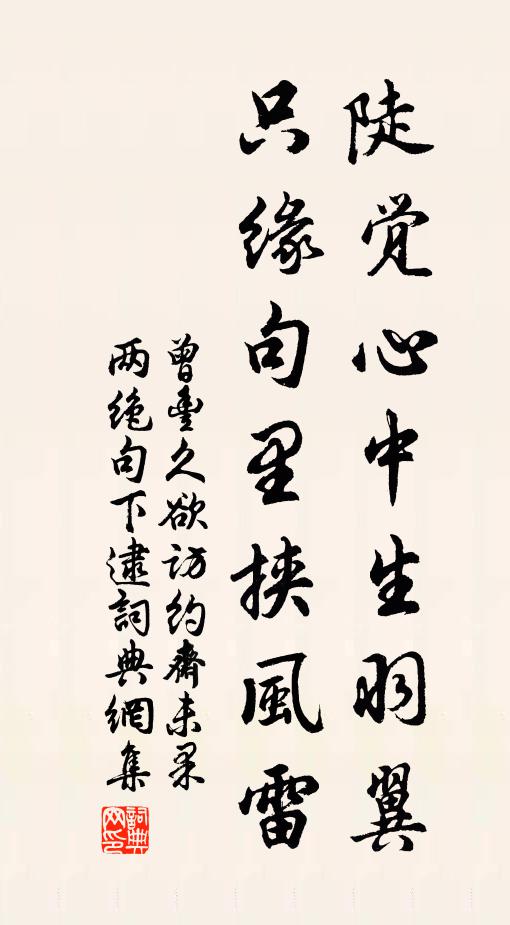 陡觉心中生羽翼
只缘句里挟風雷
曾豊久欲访约齋未果
两绝句下逮詞典網集
詞典
网印